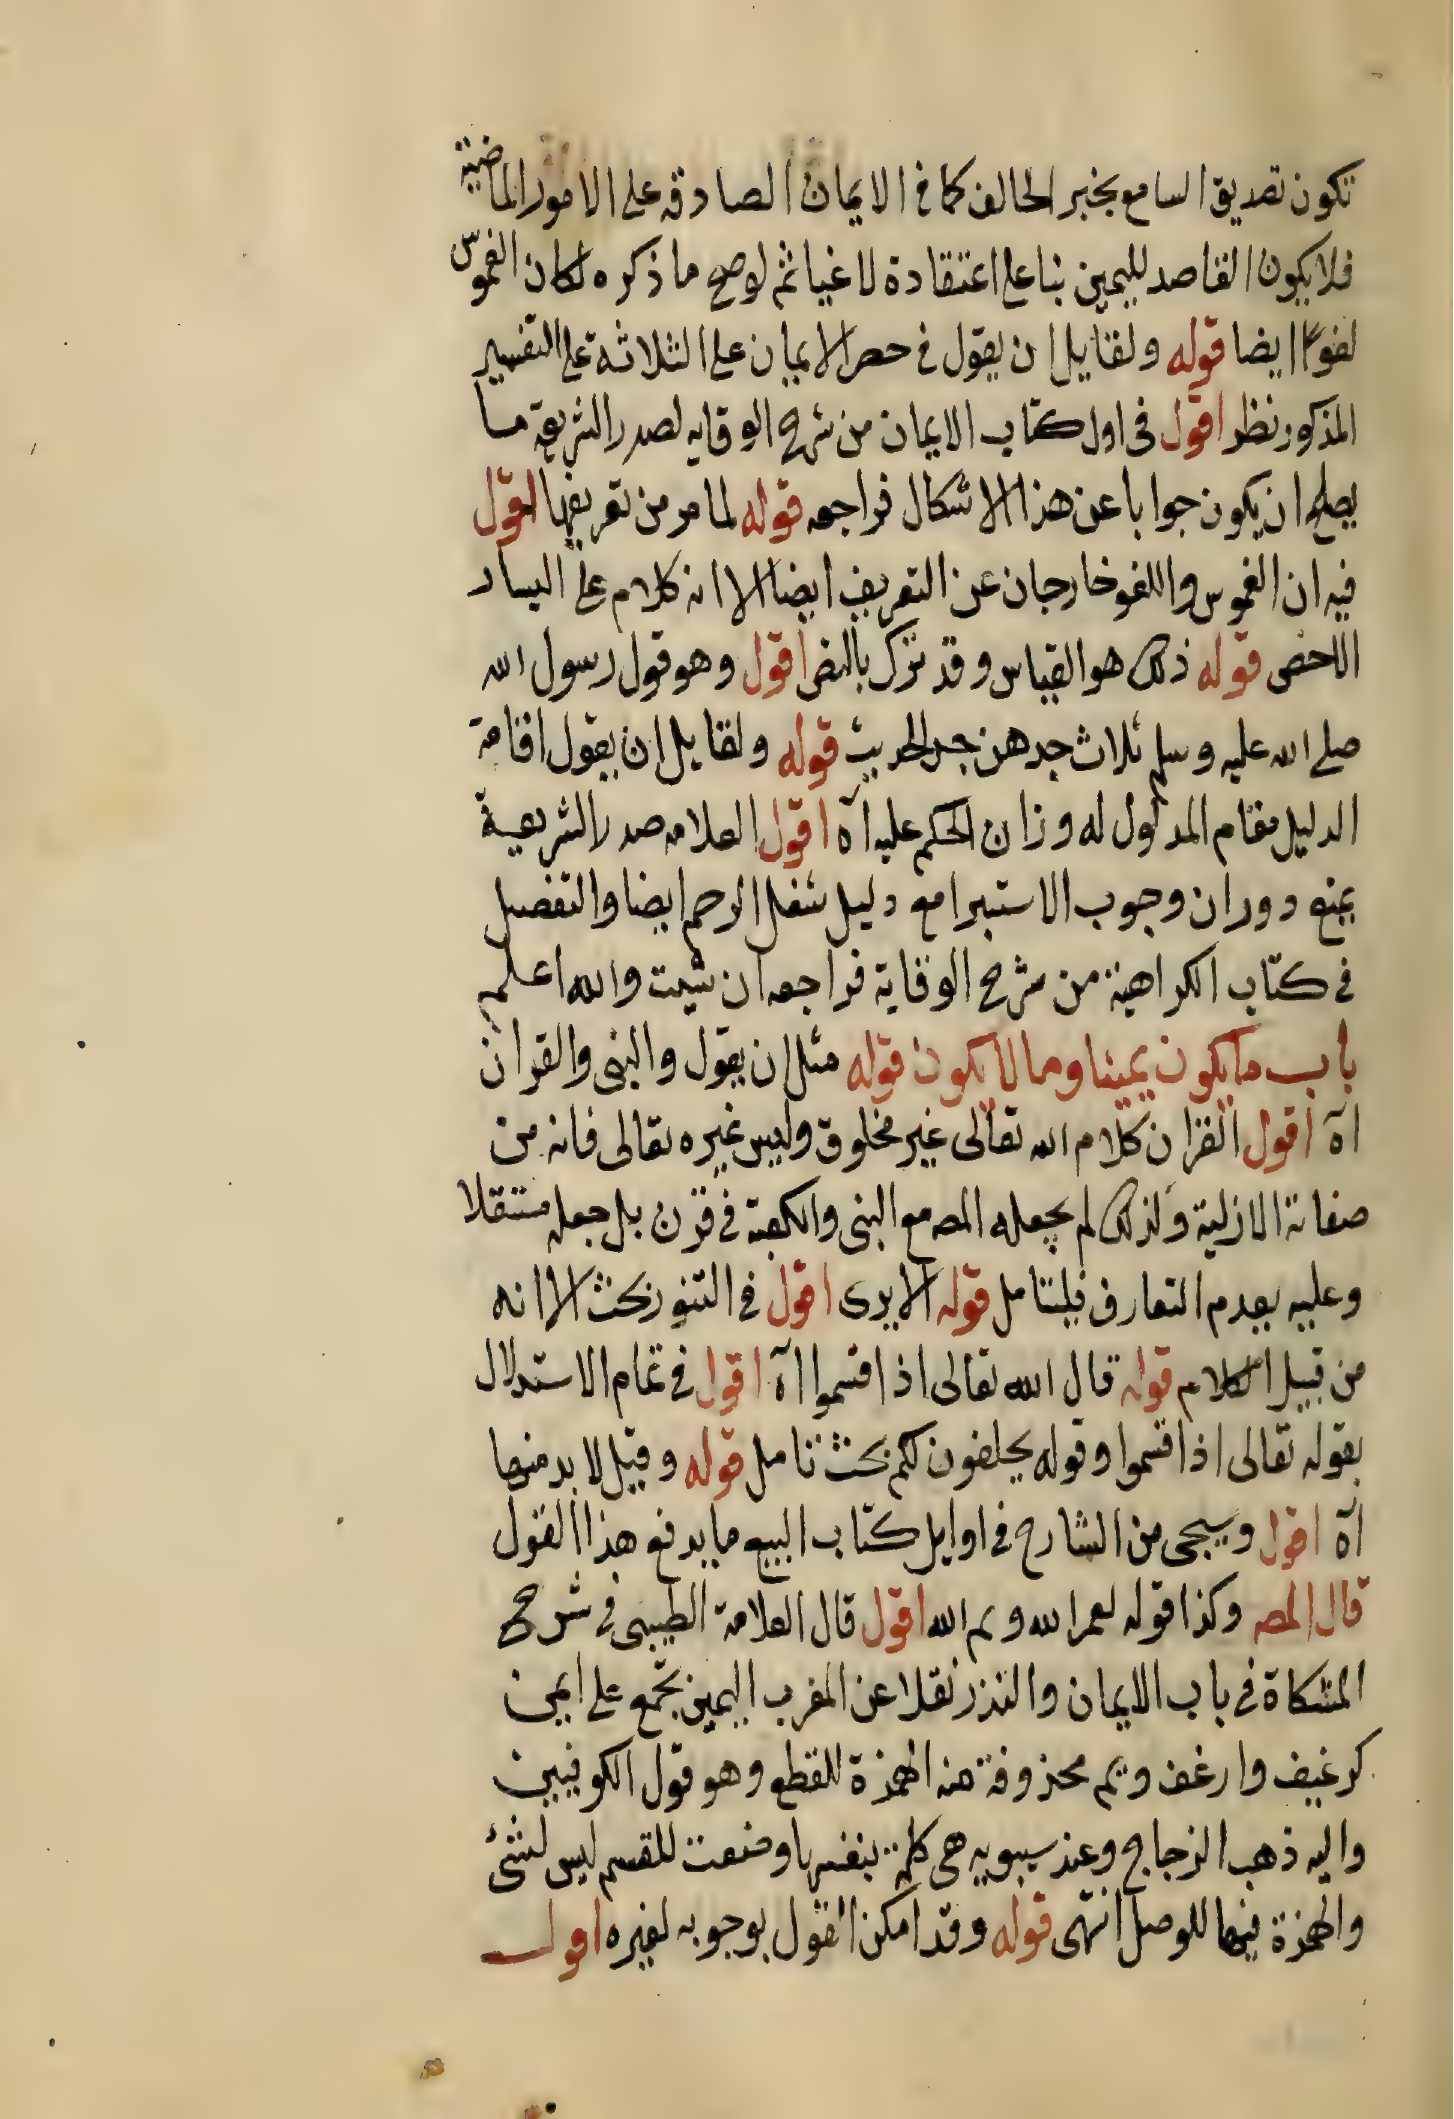 تكون تصديق السامع بخبر الحالف كما فى الايمان الصادقه على الامور الماضية
فلا يكون القاصد لليمين بناء على اعتقاده لاغيا ثم لو صح ما ذكره لكان الغموس
لغوا ايضا قوله ولقايل ان يقول فى حصر الايمان على الثلاثة على التفسير
المذكور نظر اقول فى اول كتاب الايمان من شرح الوقايه لصدر الشريعة ما
يصلح ان يكون جوابا عن هذا الاشكال فراجعه قوله لما مر من تعريفها اقول
فيه ان الغموس واللغو خارجان عن التعريف ايضا الا انه كلام على السند
الاخص قوله ذلك هو القياس وقد ترك بالنص اقول وهو قول رسول الله
صلى الله عليه وسلم ثلاث جدهن جد الحديث قوله ولقايل ان يقول اقامة
الدليل مقام المدلول له وزان الحكم عليه آه اقول العلامه صدر الشريعية
يمنع دوران وجوب الاستبرا مع دليل شغل الرحم ايضا والتفصيل
فى كتاب الكراهية من شرح الوقاية فراجعه ان شيت والله اعلم
باب ما يكون يمينا وما لا يكون قوله مثل ان يقول والنبى والقران
آه اقول القران كلام الله تعالى غير مخلوق وليس غيره تعالى فانه من
صفاته الازلية ولذلك لم يجعله المص مع النبى والكعبة فى قرن بل جعله مستقلا
وعليه بعدم التعارف فليتامل قوله الا يرى اقول فى التنوير بحث الا انه
من قبيل الكلام قوله قال الله تعالى اذ اقسموا آه اقول فى تمام الاستدلال
بقوله تعالى اذ اقسموا وقوله يحلفون لكم بحث تامل قوله وقيل لا بد منها
آه اقول وسيجى من الشارح فى اوايل كتاب البيع ما يدفع هذا القول
قال المص وكذا قوله لعمر الله ويم الله اقول قال العلامة الطيبى فى شرح
المشكاة فى باب الايمان والنذر نقلا عن المغرب اليمين تجمع على ايمن
كرغيف وارغف ويم محذوفة منه الهمزة للقطع وهو قول الكوفيين
واليه ذهب الزجاج وعند سيبويه هى كلمة بنفسها وضعت للقسم ليس لشئ
والهمزة فيها للوصل انتهى قوله وقد امكن القول بوجوبه لغيره اقول